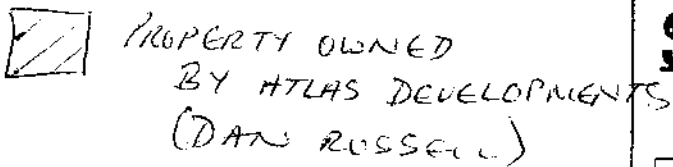 PROPERTY OWNED
BY ATLAS DEVELOPMENTS
(DAN RUSSELL)